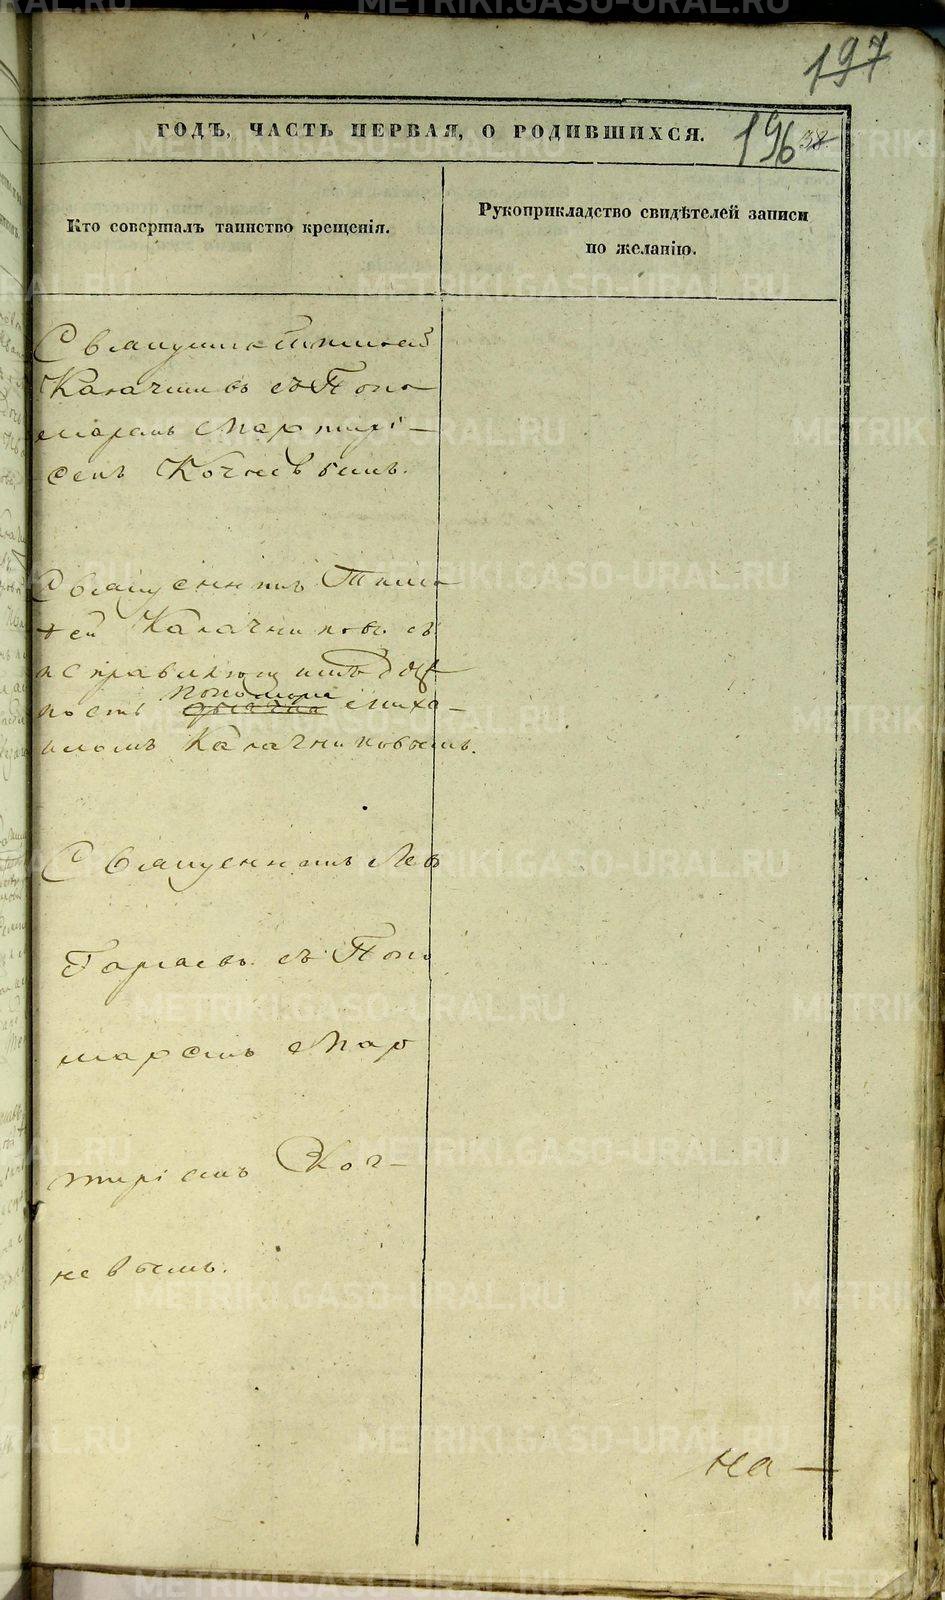 197
ГОДЪ, ЧАСТЬ ПЕРВАЯ, О РОДИВШИХСЯ.
196 38
Кто совершалъ таинство крещенія.
Рукоприкладство свидѣтелей записи
по желанію.
Священникъ
Калачниковъ съ Поно
маремъ Мартирі-
емъ Кочневымъ.
Священникъ Тимо
фей Калачниковъ съ
исправляющимъ долж
ность пономаря
дьячка Миха-
иломъ Калачниковымъ.
Священникъ Левъ
Гаряевъ съ Поно
маремъ Мар
тиріемъ Коч-
невымъ.
на-
METRIKI.GASO-URAL.RU